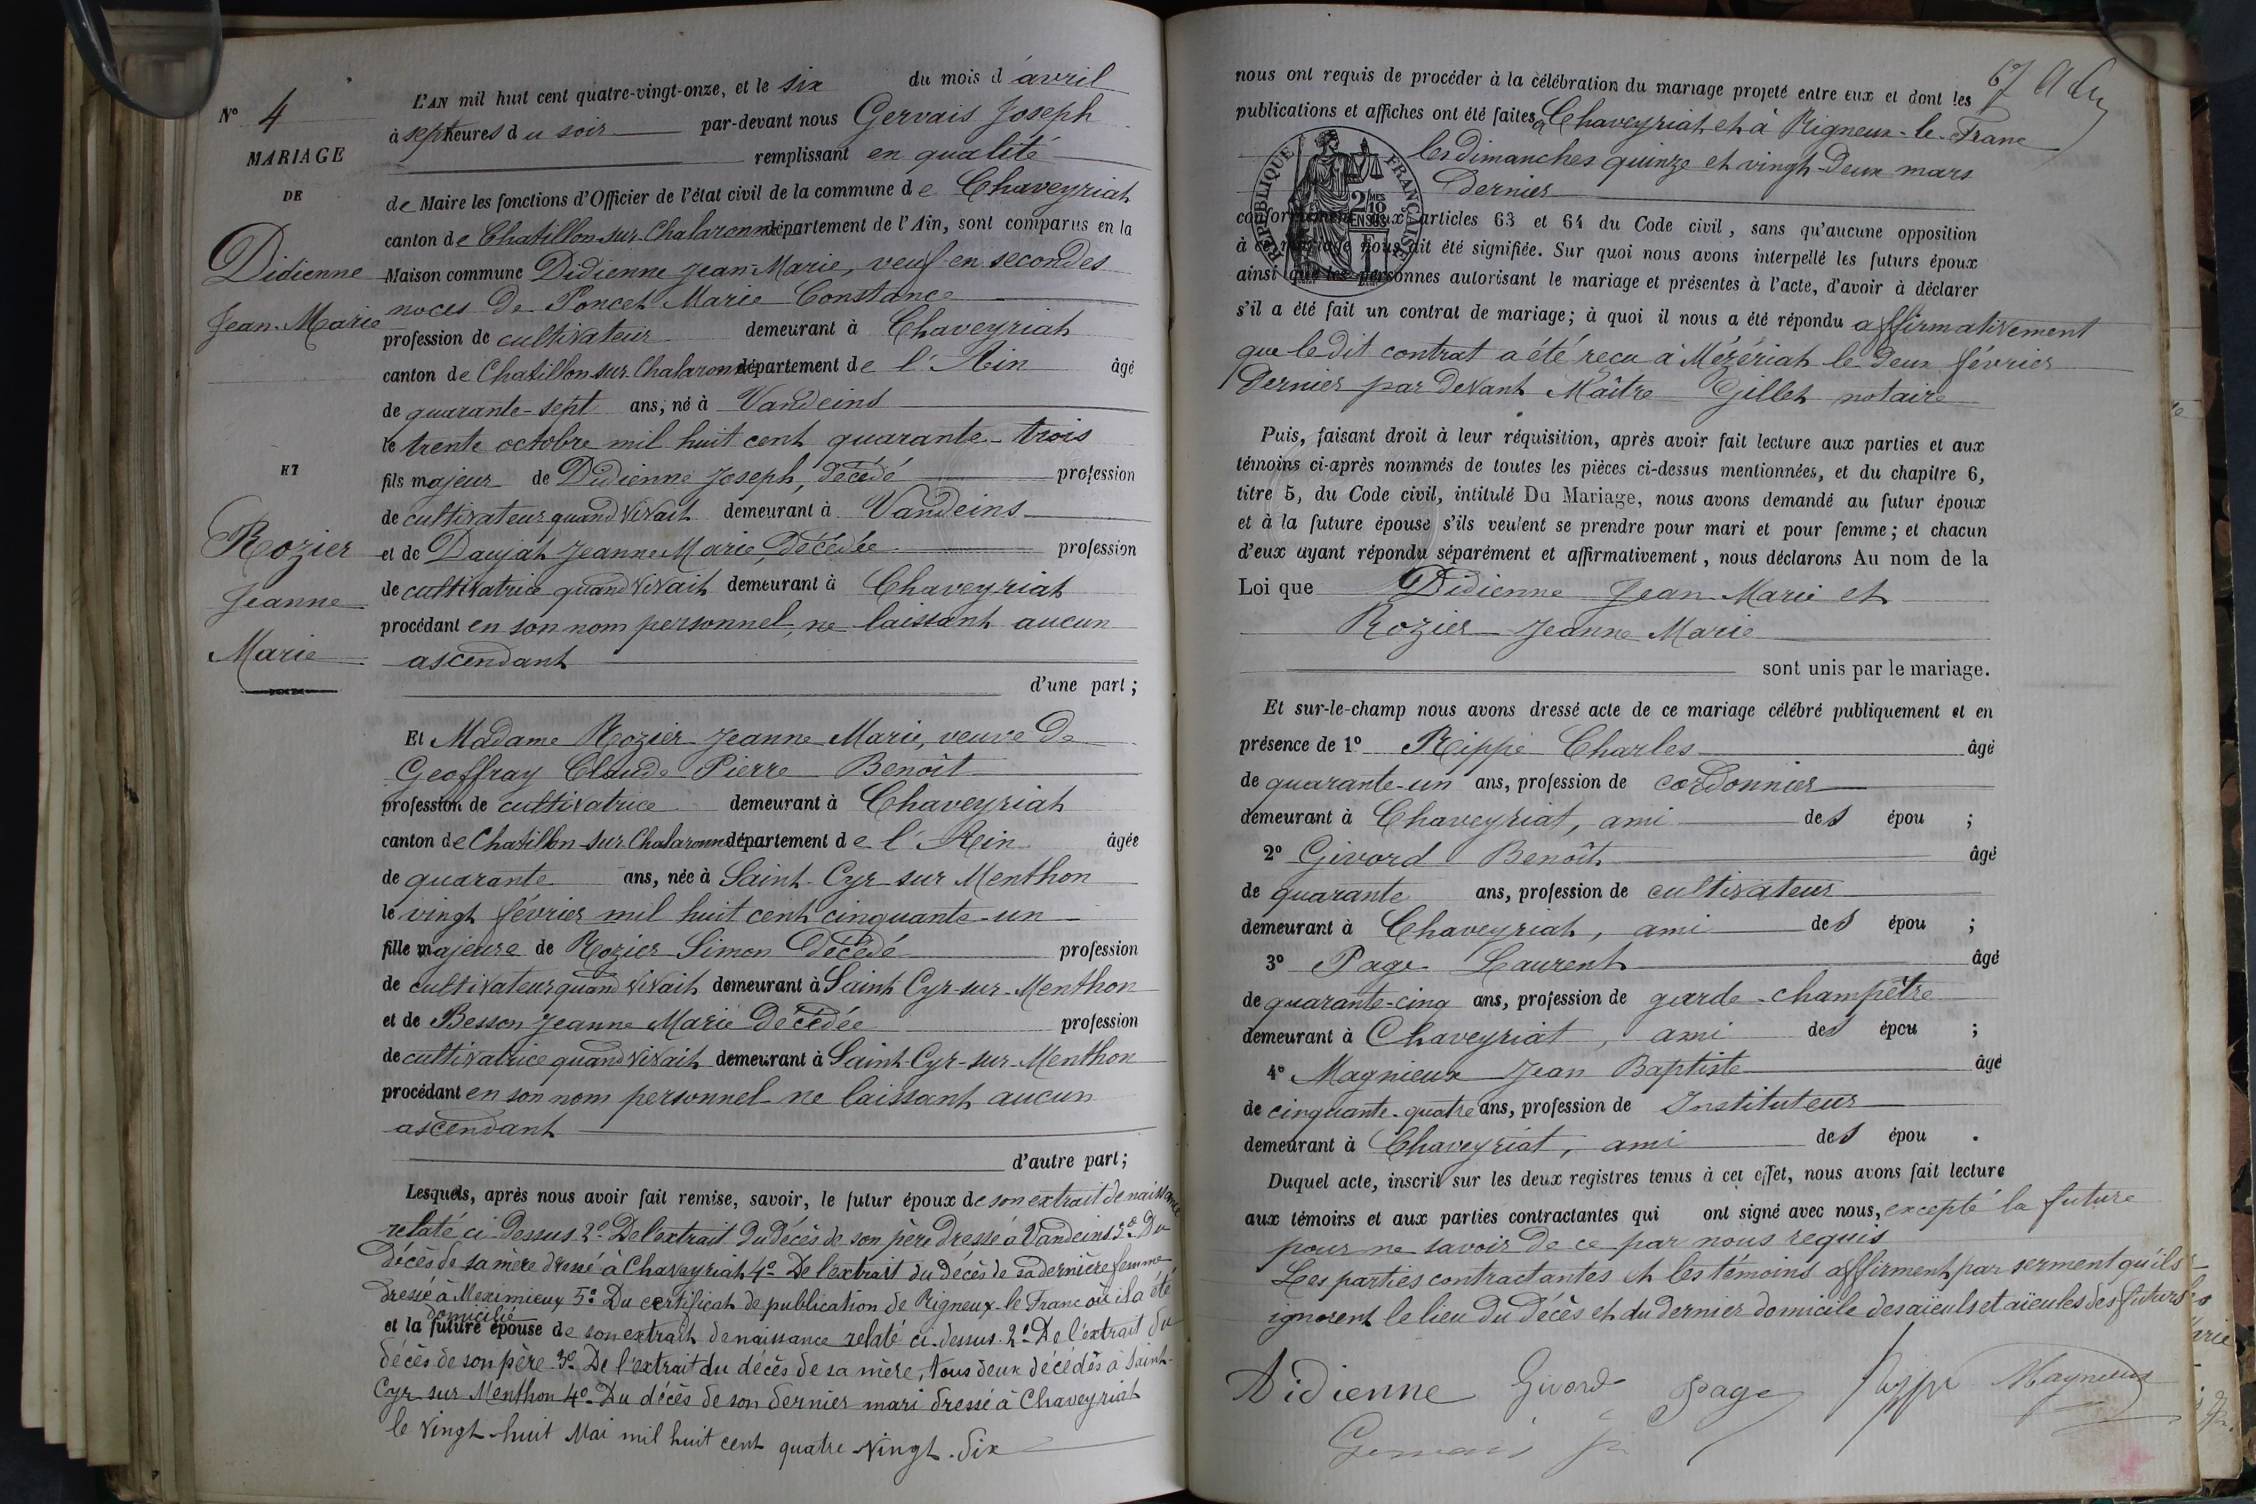 N° 4
MARIAGE
DE
Didienne
Jean-Marie
ET
Rozier
Jeanne
Marie
L'AN mil huit cent quatre-vingt-onze, et le six du mois d'avril
à sept heures du soir par-devant nous Gervais Joseph
remplissant en qualité
de Maire les fonctions d'Officier de l'état civil de la commune de Chaveyriat
canton de Chatillon-sur-Chalaronne département de l'Ain, sont comparus en la
Maison commune Didienne Jean-Marie, veuf en secondes
noces de Poncet Marie Constance
profession de cultivateur demeurant à Chaveyriat
canton de Chatillon-sur-Chalaronne département de l'Ain âgé
de quarante-sept ans, né à Vandeins
le trente octobre mil huit cent quarante-trois
fils majeur de Didienne Joseph, décédé profession
de cultivateur quand vivait demeurant à Vandeins
et de Daujat Jeanne Marie, décédée profession
de cultivatrice quand vivait demeurant à Chaveyriat
procédant en son nom personnel, ne laissant aucun
ascendant
d'une part;
Et Madame Rozier Jeanne Marie, veuve de
Geoffray Claude Pierre Benoît
profession de cultivatrice demeurant à Chaveyriat
canton de Chatillon-sur-Chalaronne département de l'Ain âgée
de quarante ans, née à Saint-Cyr sur Menthon
le vingt février mil huit cent cinquante-un
fille majeure de Rozier Simon décédé profession
de cultivateur quand vivait demeurant à Saint Cyr-sur-Menthon
et de Besson Jeanne Marie décédée profession
de cultivatrice quand vivait demeurant à Saint-Cyr-sur-Menthon
procédant en son nom personnel ne laissant aucun
ascendant
d'autre part;
Lesquels, après nous avoir fait remise, savoir, le futur époux de son extrait de naissance
relaté ci-dessus 2° De l'extrait du décès de son père dressé à Vandeins 3° Du
décès de sa mère dressé à Chaveyriat 4° De l'extrait du décès de sa dernière femme
dressé à Meximieux 5° Du certificat de publication de Rigneux-le-Franc où il a été
domicilié
et la future épouse de son extrait de naissance relaté ci-dessus 2° De l'extrait du
décès de son père 3° De l'extrait du décès de sa mère, tous deux décédés à Saint-
Cyr-sur Menthon 4° Du décès de son dernier mari dressé à Chaveyriat
le vingt-huit Mai mil huit cent quatre-vingt-dix
67
nous ont requis de procéder à la célébration du mariage projeté entre eux et dont les
publications et affiches ont été faites à Chaveyriat et à Rigneux-le-Franc
les dimanches quinze et vingt-deux mars
dernier
RÉPUBLIQUE FRANÇAISE
2/10MES EN SUS
conformément aux articles 63 et 64 du Code civil, sans qu'aucune opposition
à ce mariage nous ait été signifiée. Sur quoi nous avons interpellé les futurs époux
ainsi que les personnes autorisant le mariage et présentes à l'acte, d'avoir à déclarer
s'il a été fait un contrat de mariage; à quoi il nous a été répondu affirmativement
que le dit contrat a été reçu à Mézériat le deux février
dernier par devant Maître Gillet notaire
Puis, faisant droit à leur réquisition, après avoir fait lecture aux parties et aux
témoins ci-après nommés de toutes les pièces ci-dessus mentionnées, et du chapitre 6,
titre 5, du Code civil, intitulé Du Mariage, nous avons demandé au futur époux
et à la future épouse s'ils veulent se prendre pour mari et pour femme; et chacun
d'eux ayant répondu séparément et affirmativement, nous déclarons Au nom de la
Loi que Didienne Jean-Marie et
Rozier Jeanne Marie
sont unis par le mariage.
Et sur-le-champ nous avons dressé acte de ce mariage célébré publiquement et en
présence de 1° Rippe Charles âgé
de quarante-un ans, profession de cordonnier
demeurant à Chaveyriat, ami des épou ;
2° Givord Benoît âgé
de quarante ans, profession de cultivateur
demeurant à Chaveyriat, ami des épou ;
3° Page Laurent âgé
de quarante-cinq ans, profession de garde-champêtre
demeurant à Chaveyriat, ami des épou ;
4° Magnieux Jean Baptiste âgé
de cinquante-quatre ans, profession de Instituteur
demeurant à Chaveyriat, ami des épou .
Duquel acte, inscrit sur les deux registres tenus à cet effet, nous avons fait lecture
aux témoins et aux parties contractantes qui ont signé avec nous, excepté la future
pour ne savoir de ce par nous requis
Les parties contractantes et les témoins affirment par serment qu'ils
ignorent le lieu du décès et du dernier domicile des aïeuls et aïeules des futurs
Didienne Givord Page Rippe Magnieux
Gervais J